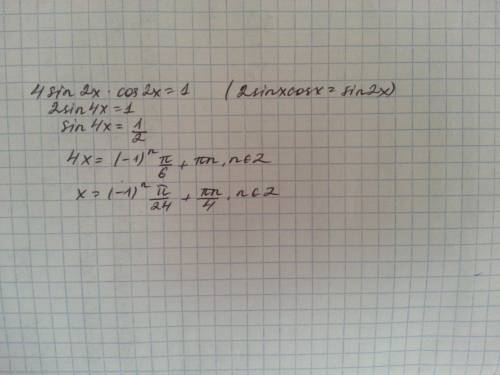 4 sin 2x · cos 2x = 1 (2sinxcosx = sin2x)
2sin4x = 1
sin 4x = 1/2
4x = (-1)ⁿ π/6 + πn, n∈Z
x = (-1)ⁿ π/24 + πn/4, n∈Z